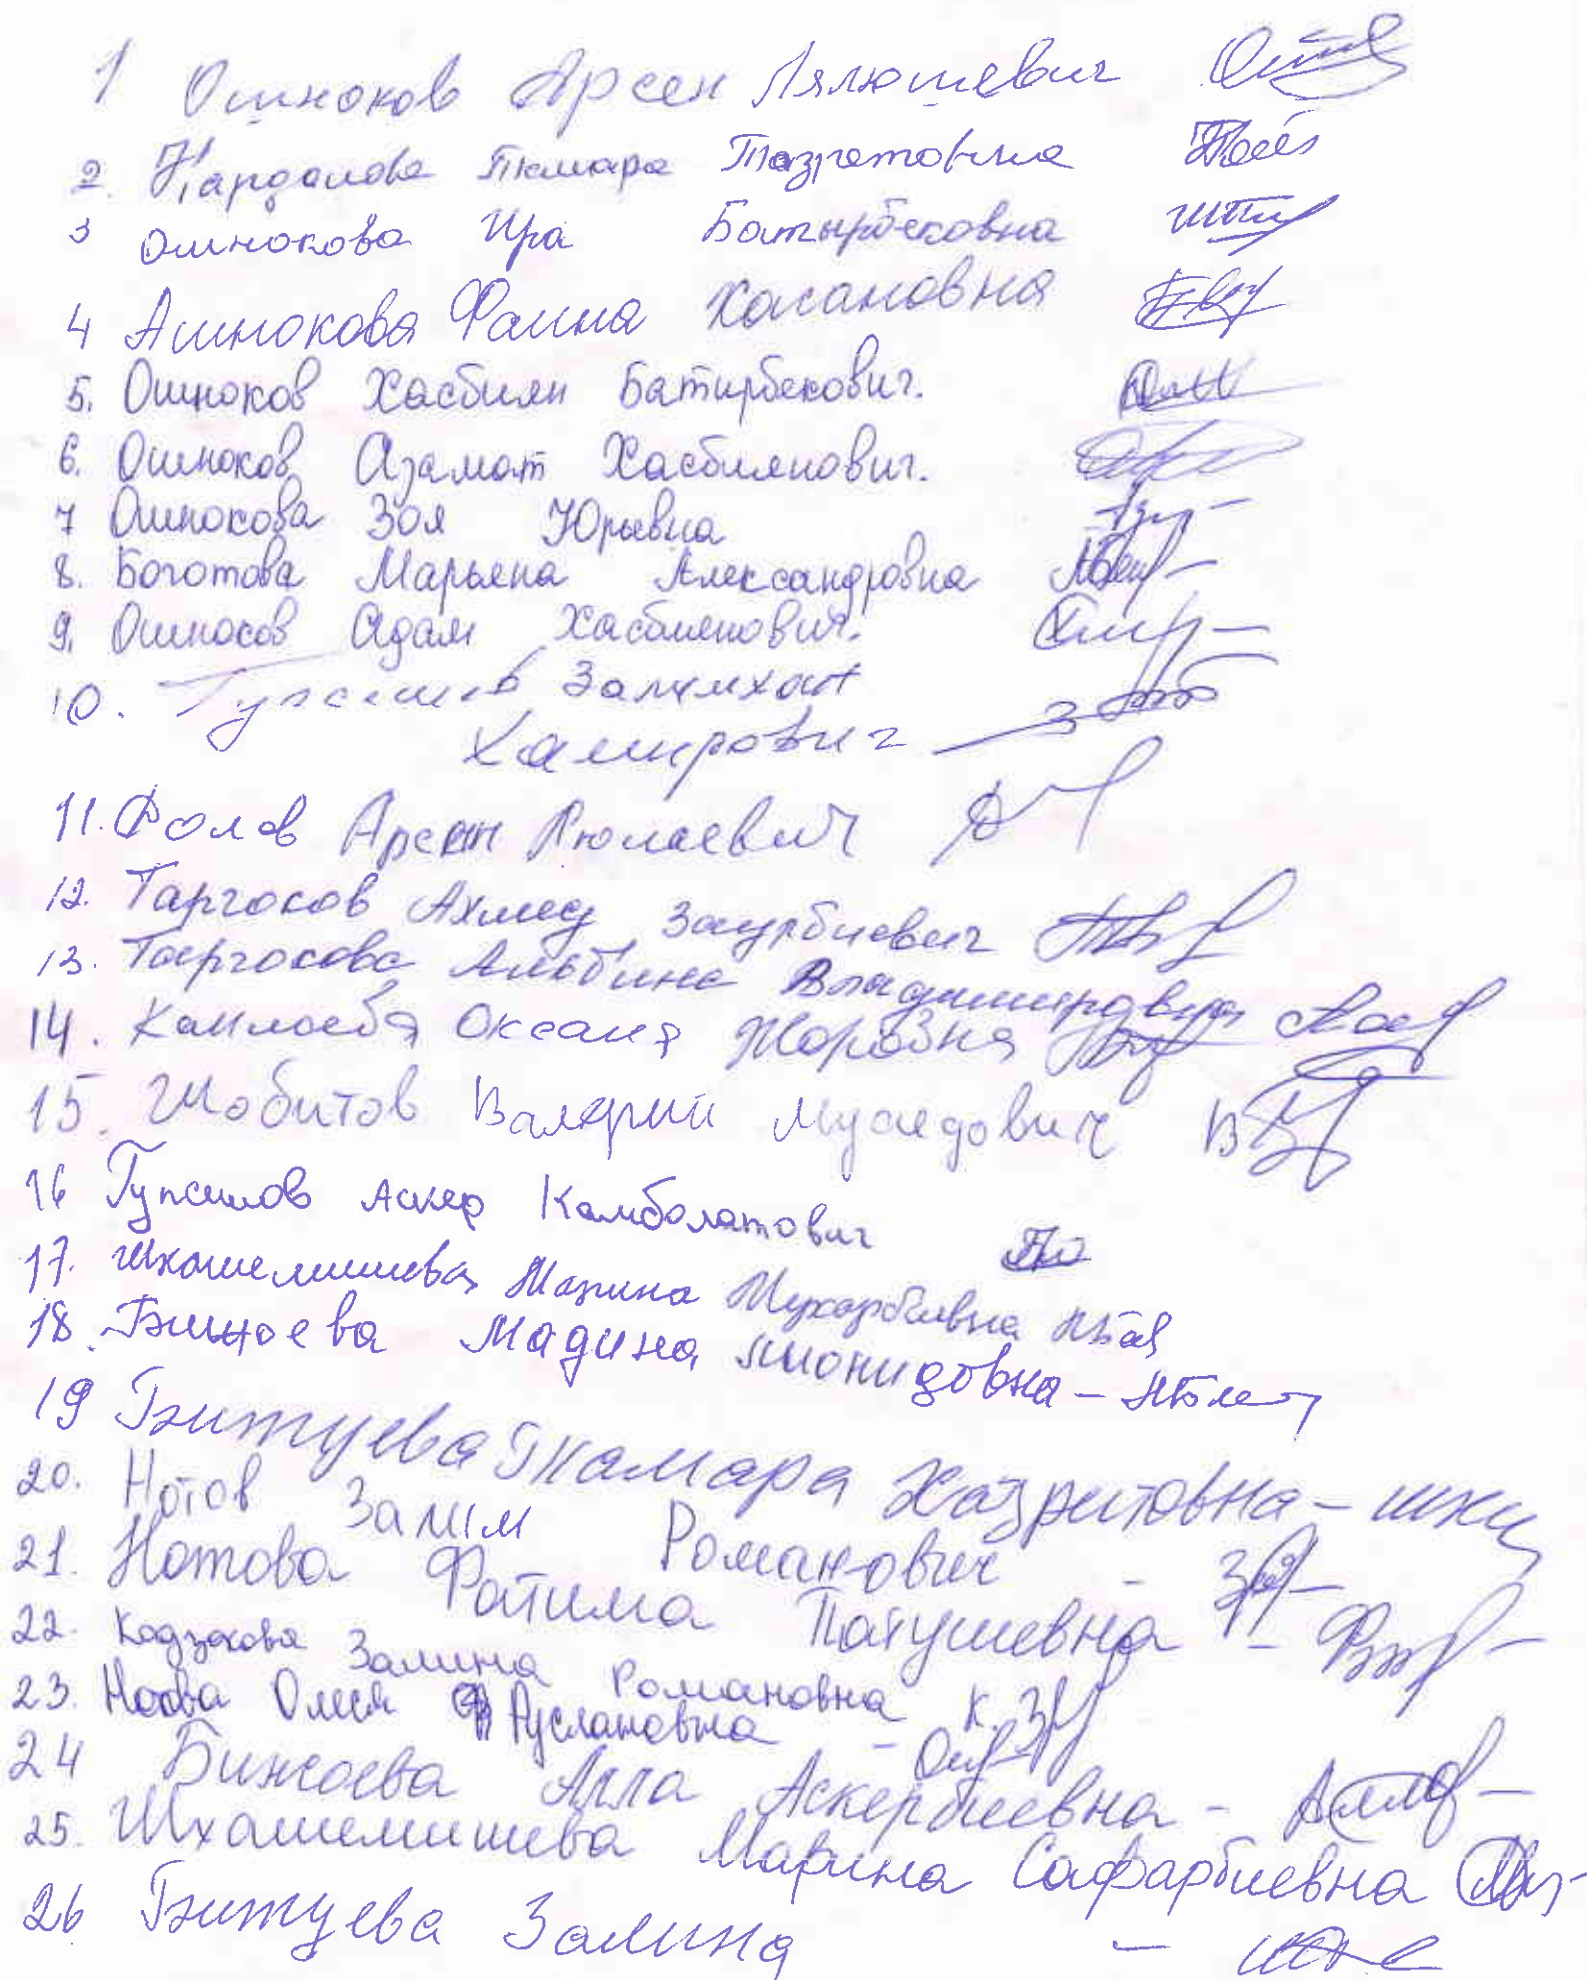 1 Ошноков Арсен Лялюшевич
2. Кардамова Тамара Тазретовна
3 Ошнокова Ира Батырбековна
4 Ашнокова Фаина Хасановна
5. Ошноков Хасбиян Батирбекович.
6. Ошноков Азамат Хасбиянович.
7 Ошнокова Зоя Юрьевна
8. Боготова Марьяна Александровна
9. Ошноков Адам Хасбиянович.
10. Залимхан
Хамирович
11. Фолов Арсен Люлаевич
12. Таргоков Ахмед Заурбиевич
13. Таргокова Альбина Владимировна
14. Оксана Жоровна
15. Шобитов Валерий Мусаедович
16 Гупсешов Аскер Камболатович
17. Шхашемишева Марина Мухарбиевна
18. Мадина Лионидовна -
19 Битуева Тамара Хазритовна -
20. Нотов Залим Романович -
21. Нотова Фатима Патушевна -
22. Кодзокова Залина Романовна
23. Олеся Руслановна -
24 Бижоева Алла Аскербиевна -
25. Шхашемишева Марина Сафарбиевна
26 Битуева Залина -